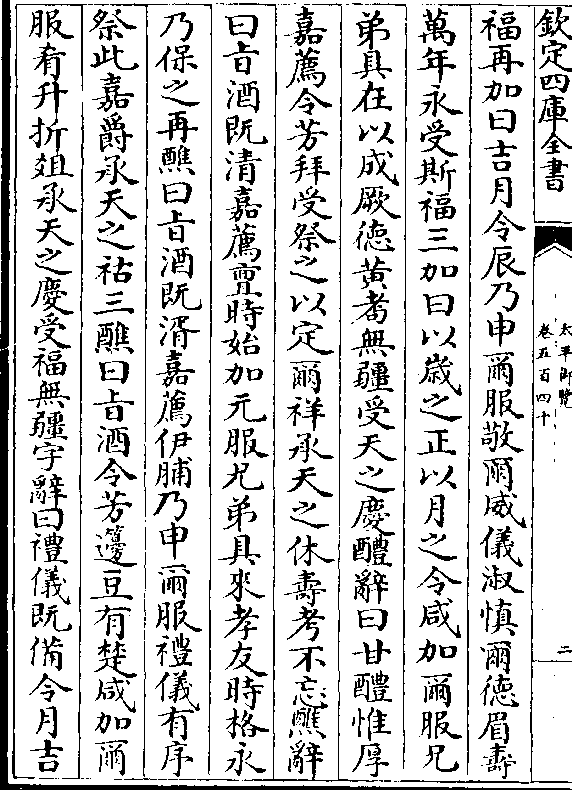 欽定四庫全書
太平御覽
卷五百四十
二
福再加曰吉月令辰乃申爾服敬爾威儀淑慎爾德眉壽
萬年永受斯福三加曰以歲之正以月之令咸加爾服兄
弟具在以成厥德黄耉無疆受天之慶醴辭曰甘醴惟厚
嘉薦令芳拜受祭之以定爾祥承天之休壽考不忘醮辭
曰㫖酒既清嘉薦亶時始加元服兄弟具來孝友時格永
乃保之再醮曰㫖酒既湑嘉薦伊脯乃申爾服禮儀有序
祭此嘉爵承天之祜三醮曰㫖酒令芳籩豆有楚咸加爾
服肴升折俎承天之慶受福無疆字辭曰禮儀既備令月吉